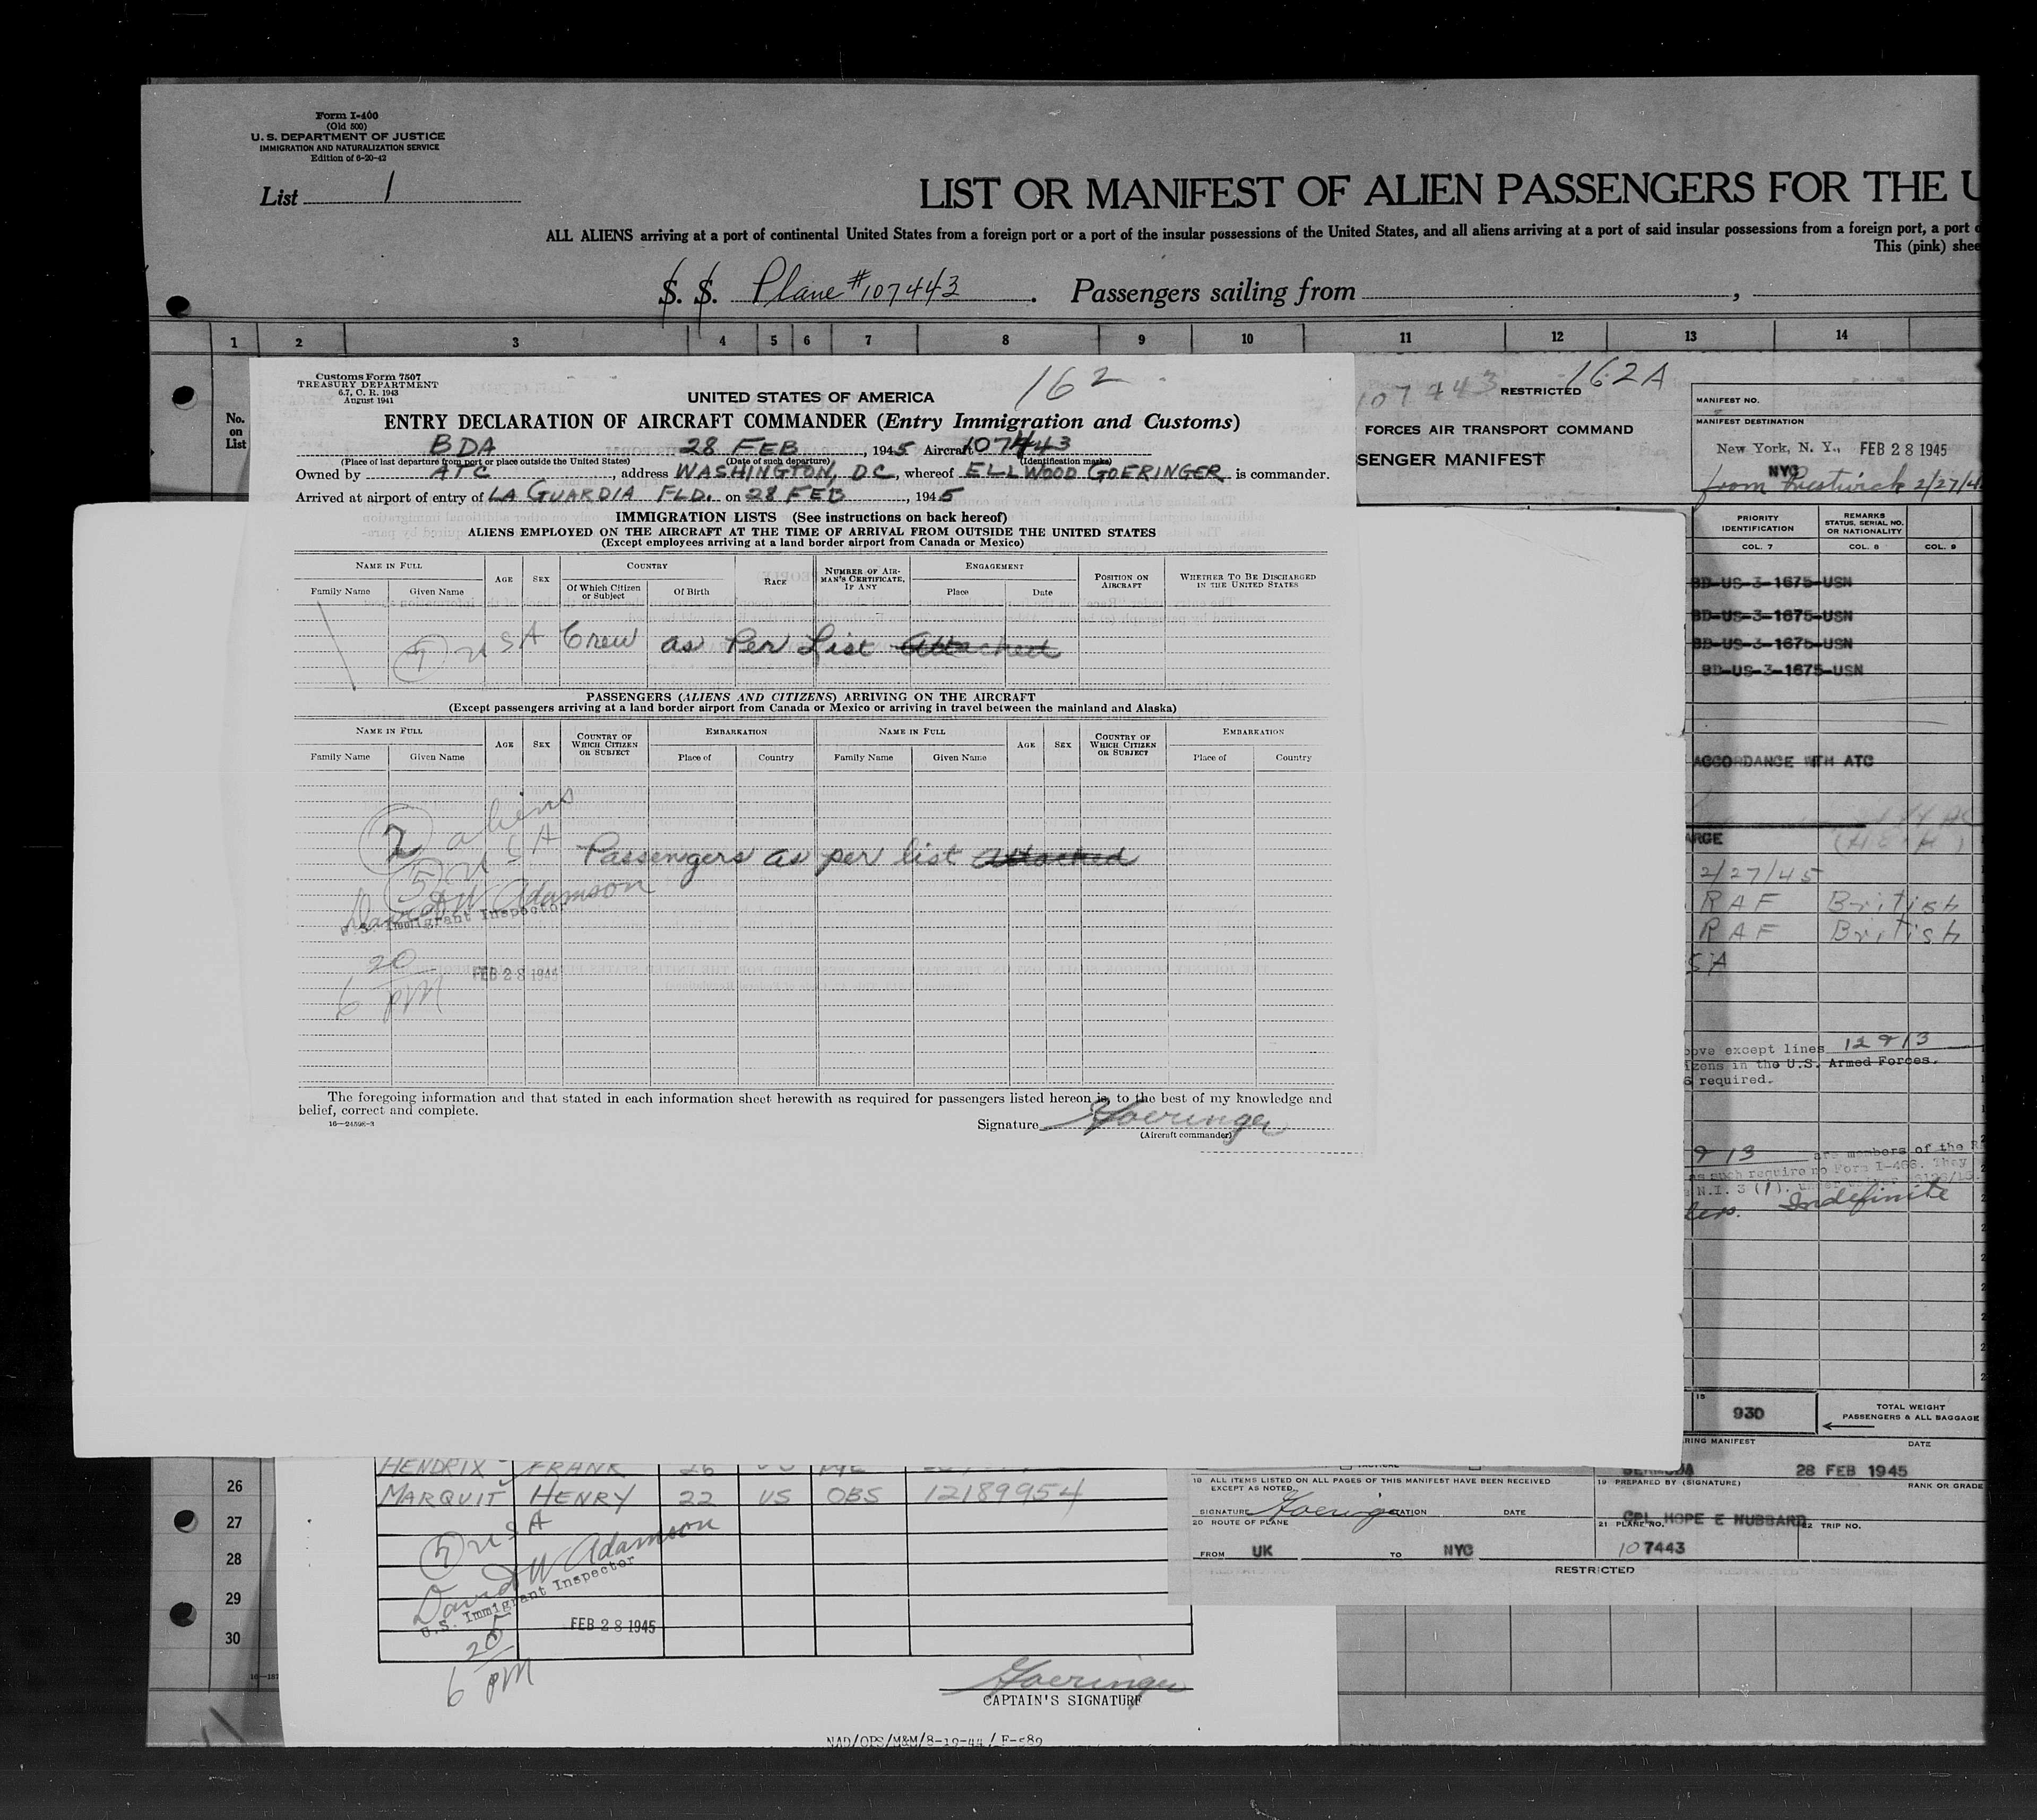 Form I-400
(Old 500)
U. S. DEPARTMENT OF JUSTICE
IMMIGRATION AND NATURALIZATION SERVICE
Edition of 6-20-42
List 1
LIST OR MANIFEST OF ALIEN PASSENGERS FOR THE U
ALL ALIENS arriving at a port of continental United States from a foreign port or a port of the insular possessions of the United States, and all aliens arriving at a port of said insular possessions from a foreign port, a port
This (pink) shee
S. S. Plane #107443 . Passengers sailing from ,
1 2 3 4 5 6 7 8 9 10 11 12 13 14
No.
on
List
Customs Form 7507
TREASURY DEPARTMENT
6.7, C. R. 1943
August 1941
162
UNITED STATES OF AMERICA
ENTRY DECLARATION OF AIRCRAFT COMMANDER (Entry Immigration and Customs)
BDA 28 FEB , 1945 Aircraft 107443
(Place of last departure from port or place outside the United States) (Date of such departure) (Identification marks)
Owned by ATC , address WASHINGTON, DC, whereof ELLWOOD GOERINGER is commander.
Arrived at airport of entry of LA GUARDIA FLD. on 28 FEB , 1945
IMMIGRATION LISTS (See instructions on back hereof)
ALIENS EMPLOYED ON THE AIRCRAFT AT THE TIME OF ARRIVAL FROM OUTSIDE THE UNITED STATES
(Except employees arriving at a land border airport from Canada or Mexico)
NAME IN FULL AGE SEX COUNTRY RACE NUMBER OF AIRMAN'S CERTIFICATE, IF ANY ENGAGEMENT POSITION ON AIRCRAFT WHETHER TO BE DISCHARGED IN THE UNITED STATES
Family Name Given Name Of Which Citizen or Subject Of Birth Place Date
7 USA Crew as Per List Attached
PASSENGERS (ALIENS AND CITIZENS) ARRIVING ON THE AIRCRAFT
(Except passengers arriving at a land border airport from Canada or Mexico or arriving in travel between the mainland and Alaska)
NAME IN FULL AGE SEX COUNTRY OF WHICH CITIZEN OR SUBJECT EMBARKATION NAME IN FULL AGE SEX COUNTRY OF WHICH CITIZEN OR SUBJECT EMBARKATION
Family Name Given Name Place of Country Family Name Given Name Place of Country
2 aliens
5 USA
Passengers as per list attached
David W Adamson
U.S. Immigrant Inspector
6 20 PM
FEB 28 1945
The foregoing information and that stated in each information sheet herewith as required for passengers listed hereon is, to the best of my knowledge and
belief, correct and complete.
16—24598-3
Signature Goeringer
(Aircraft commander)
107443 RESTRICTED 162A
FORCES AIR TRANSPORT COMMAND
SENGER MANIFEST
MANIFEST NO.
MANIFEST DESTINATION
New York, N. Y., FEB 28 1945
NYC
from Prestwick 2/27/4
PRIORITY IDENTIFICATION REMARKS STATUS, SERIAL NO. OR NATIONALITY
COL. 7 COL. 8 COL. 9
BD-US-3-1675-USN
BD-US-3-1675-USN
BD-US-3-1675-USN
BD-US-3-1675-USN
ACCORDANCE WITH ATC
ARGE
2/27/45
RAF British
RAF British
SA
ove except lines 12 & 13
izens in the U.S. Armed Forces.
required.
& 13 are members of the R
as such require no Form I-466. They
N.I. 3 (1),
Indefinite
15
930
TOTAL WEIGHT
PASSENGERS & ALL BAGGAGE
RING MANIFEST DATE
BERMUDA 28 FEB 1945
18 ALL ITEMS LISTED ON ALL PAGES OF THIS MANIFEST HAVE BEEN RECEIVED
EXCEPT AS NOTED.
19 PREPARED BY (SIGNATURE) RANK OR GRADE
SIGNATURE Goeringer DATE
CPL HOPE E HUBBARD
20 ROUTE OF PLANE 21 PLANE NO. 22 TRIP NO.
FROM UK TO NYC 107443
RESTRICTED
26
27
28
29
30
HENDRIX FRANK 26
MARQUIT HENRY 22 US OBS 12189954
7 USA
David W Adamson
U.S. Immigrant Inspector
FEB 28 1945
6 20 PM
Goeringer
CAPTAIN'S SIGNATURE
NAD/OPS/M&M/8-19-44/F-589